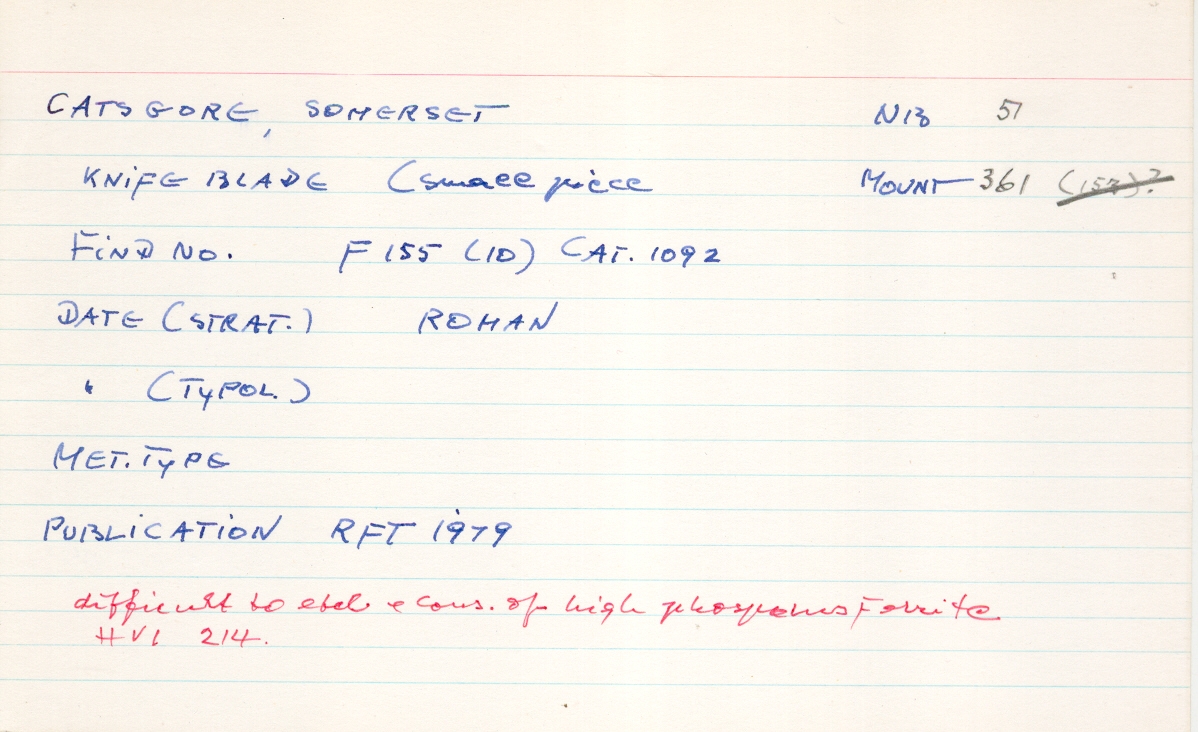 CATSGORE, SOMERSET NB 57
KNIFE BLADE (small piece MOUNT 361 (153)?
FIND NO. F 155 (10) CAT. 1092
DATE (STRAT.) ROMAN
" (TYPOL.)
MET. TYPE
PUBLICATION RFT 1979
difficult to etch & cons. of high phosporus Ferrite
HV1 214.